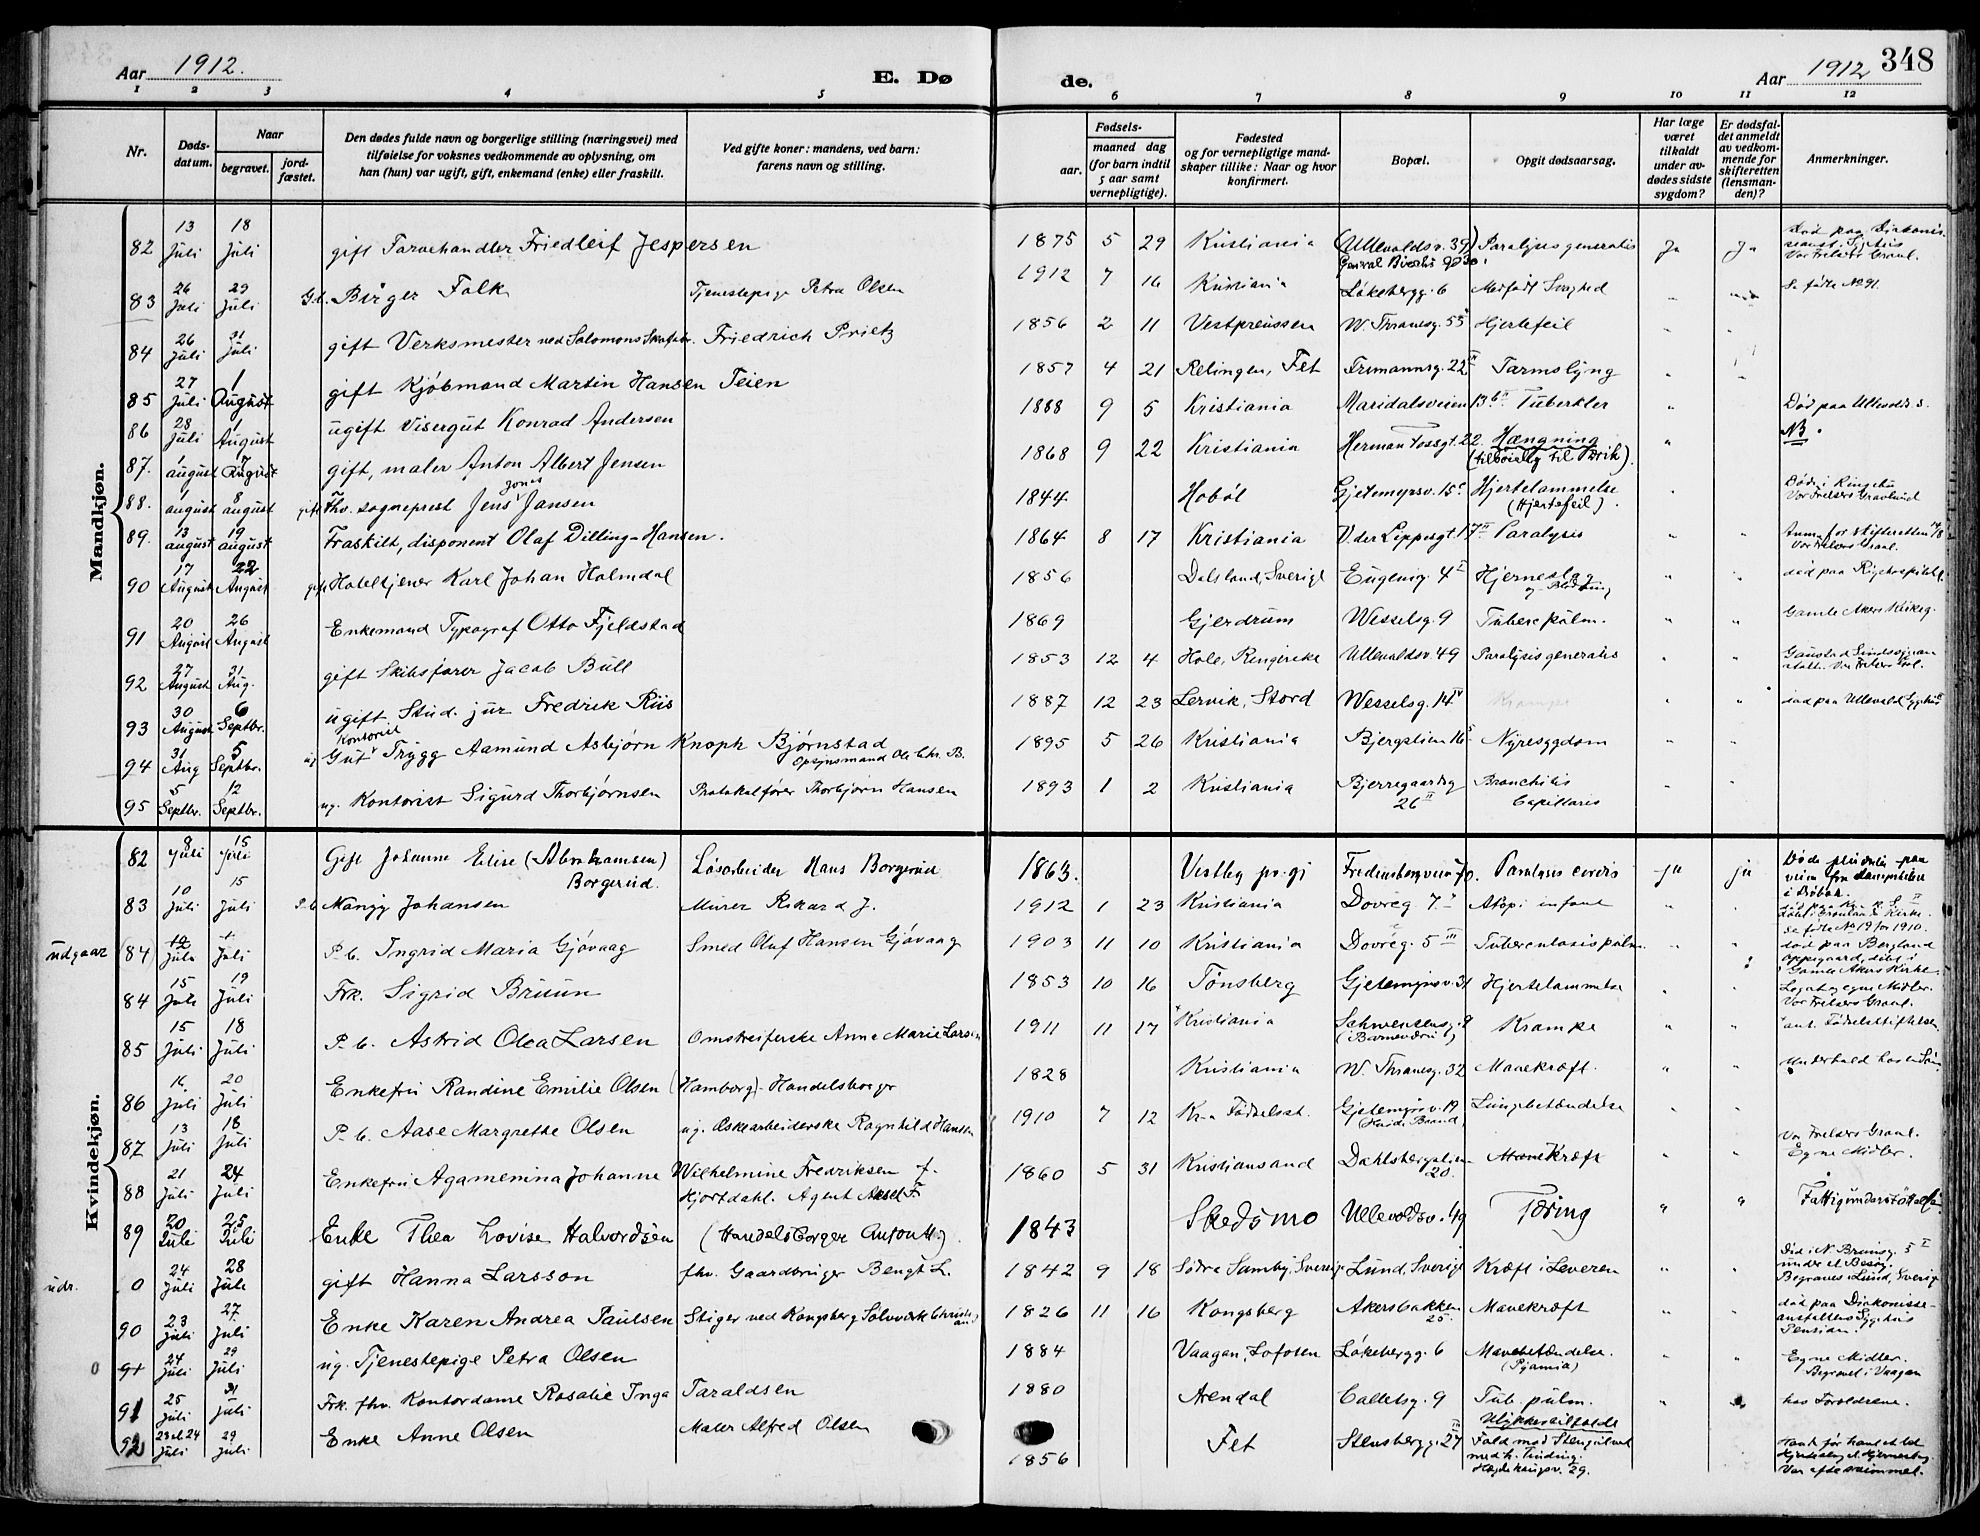 348
Aar 1912.
E. Dø de.
Aar 1912
1 2 3 4 5 6 7 8 9 10 11 12
Nr.
Døds-
datum.
Naar
begravet.
jord-
fæstet.
Den dødes fulde navn og borgerlige stilling (næringsvei) med
tilføielse for voksnes vedkommende av oplysning, om
han (hun) var ugift, gift, enkemand (enke) eller fraskilt.
Ved gifte koner: mandens, ved barn:
farens navn og stilling.
Fødsels-
aar.
maaned dag
(for barn indtil
5 aar samt
vernepligtige).
Fødested
og for vernepligtige mand-
skaper tillike: Naar og hvor
konfirmert.
Bopæl.
Opgit dødsaarsag.
Har læge
været
tilkaldt
under av-
dødes sidste
sygdom?
Er dødsfal-
det anmeldt
av vedkom-
mende for
skifteretten
(lensman-
den)?
Anmerkninger.
Mandkjøn.
82 13 Juli 18 Juli gift Farvehandler Friedleif Jespersen 1875 5 29 Kristiania (Ullevoldsv. 39) Paralysis generalis Ja Ja
83 26 Juli 29 Juli G.b. Birger Falk Tjenestepige Petra Olsen 1912 7 16 Kristiania Løkebergg. 6 Medfødt Svaghed " Se fødte No 91.
84 26 Juli 31 Juli gift Verksmester ved Salomons Skofabr. Friedrich Prietz 1856 2 11 Vestpreussen W. Thranesg. 55 Hjertefeil "
85 27 Juli 1 August gift Kjøbmand Martin Hansen Teien 1857 4 21 Relingen, Fet Frimannsg. 22 Tarmslyng "
86 28 Juli 1 August ugift Visergut Konrad Andersen 1888 9 5 Kristiania Maridalsveien 13 Tuberkler " Død paa Ullevold s.
87. 1 august 7 August gift, maler Anton Albert Jensen 1868 9 22 Kristiania Herman Fossgt. 22. Hængning " NB.
(tilbøielig til Drik).
88. 1 august 8 august gift Fhv. sogneprest Jens Jonas Jansen 1844 Hobøl Gjetemyrsv. 15 Hjertelammelse
(Hjertefeil).
Vor Frelsers Gravlund
89. 13 august 19 august Fraskilt, disponent Olaf Dilling-Hansen. 1864 8 17 Kristiania V. der Lippesgt. 17 Paralysis " "
Vor Frelsers Gravl.
90 17 August 22 August gift Hoteltjener Karl Johan Holmdal 1856 Dalsland, Sverige Eugenig. 4 Hjerneslag " " død paa Rigshospitalet
91 20 August 26 August Enkemand Typograf Otto Fjeldstad 1869 Gjerdrum Wesselsg. 9 Tuberc. pulm. " " Gamle Akers Kirkeg.
92 27 August 31 Aug. gift Skibsfører Jacob Bull 1853 12 4 Hole, Ringerike Ullevoldsv. 49 Paralysis generalis " "
93 30 August 6 Septbr. ugift Stud. jur Fredrik Riis 1887 12 23 Lervik, Stord Wesselsg. 14 Krampe " " død paa Ullevold Sygehus
94 31 Aug 5 Septbr. ug Kontorist Gut Trygg Aamund Asbjørn Knoph Bjørnstad Opsynsmand Ole Chr. B. 1895 5 26 Kristiania Bjergstien 16 Nyresygdom " "
95 5 Septbr. 12 Septbr. ug. Kontorist Sigurd Thorbjørnsen Protokolfører Thorbjørn Hansen 1893 1 2 Kristiania Bjerregaardsg 26 Bronchitis
Capillaris " "
Kvindekjøn.
82 8 Juli 15 Juli Gift Johanne Elise (Abrahamsen)
Borgerud. Løsarbeider Hans Borgerud 1863. Vestby pr.gj Fredensborgveien 70. Paralysis cordis Ja Ja
83 10 Juli 15 Juli P. b. Nanyy Johansen Murer Rikard J. 1912 1 23 Kristiania Dovreg. 7 Atopi infant " "
udgaar (84) 12 Juli Juli P. b. Ingrid Maria Gjøvaag Smed Oluf Hansen Gjøvaag 1903 11 10 Kristiania Dovreg. 5 III Tuberculosis pulm. " " se føte No 19 for 1910.
død paa Bergland
Oppegaard,
Gamle Akers Kirke.
84 15 Juli 19 Juli Frk. Sigrid Bruun 1853 10 16 Tønsberg Gjetemyrsv. 31 Hjertelammelse " " Legat og egne Midler.
Vor Frelsers Gravl.
85 15 Juli 18 Juli P. b. Astrid Olea Larsen Omstreiferske Anna Marie Larsen 1911 11 17 Kristiania Schwensensg. 9 Krampe " " Fødselsstiftelsen
86 16 Juli 20 Juli Enkefru Randine Emilie Olsen (Hamborg) - Handelsborger 1828 Kristiania W. Thranesg. 32 Mavekræft. " " Underhold hos en Søn
87 13 Juli 18 Juli P. b. Aase Margrethe Olsen ug. Æskearbeiderske Ragnhild Hansen 1910 7 12 Kr.a Fødselsst. Gjetemyrsv. 19 Lungebetændelse " "
88 21 Juli 24 Juli Enkefru Agamemina Johanne Wilhelmine Fredriksen f.
Hjortdahl. Agent Aksel F. 1860 5 31 Kristiansand Dahlsbergstien
20. Mavekræft " " Vor Frelsers Gravl.
Egne Midler.
89 20 Juli 25 Juli Enke Thea Lovise Halvordsen (Handelsborger Anton H.) 1843 Skedsmo Ullevoldsv. 49 Tæring " " Fattigunderstøttelse
udr. 0 24 Juli 28 Juli gift Hanna Larsson fhv. Gaardbruger Bengt L. 1842 9 18 Södra Samby, Sverige Lund, Sverige Kræft i Leveren " " Død i N. Brunsg. 5
under et Besøg.
Begraves i Lund, Sverige
90 23 Juli 27 Juli Enke Karen Andrea Paulsen Stiger ved Kongsberg Sølvverk 1826 11 16 Kongsberg Akersbakken
25. Mavekræft " " død paa Diakonisse-
anstaltens Sygehus
Pension.
0 91 24 Juli 29 Juli ug. Tjenestepige Petra Olsen 1884 Vaagan, Lofoten Løkebergg. 6 Mavebetændelse.
(Pyæmia) " " Egne Midler.
Begravet i Vaagan
91 25 Juli 31 Juli Frk. fhv. Kontordame Rosalie Inga Taraldsen 1880 Arendal Calletsg. 9 Tub. pulm. " hos Forældrene.
92 23 el 24 Juli 29 Juli Enke Anne Olsen Maler Alfred Olsen 1856 Fet Stensbergg. 27 III Ulykkestilfælde